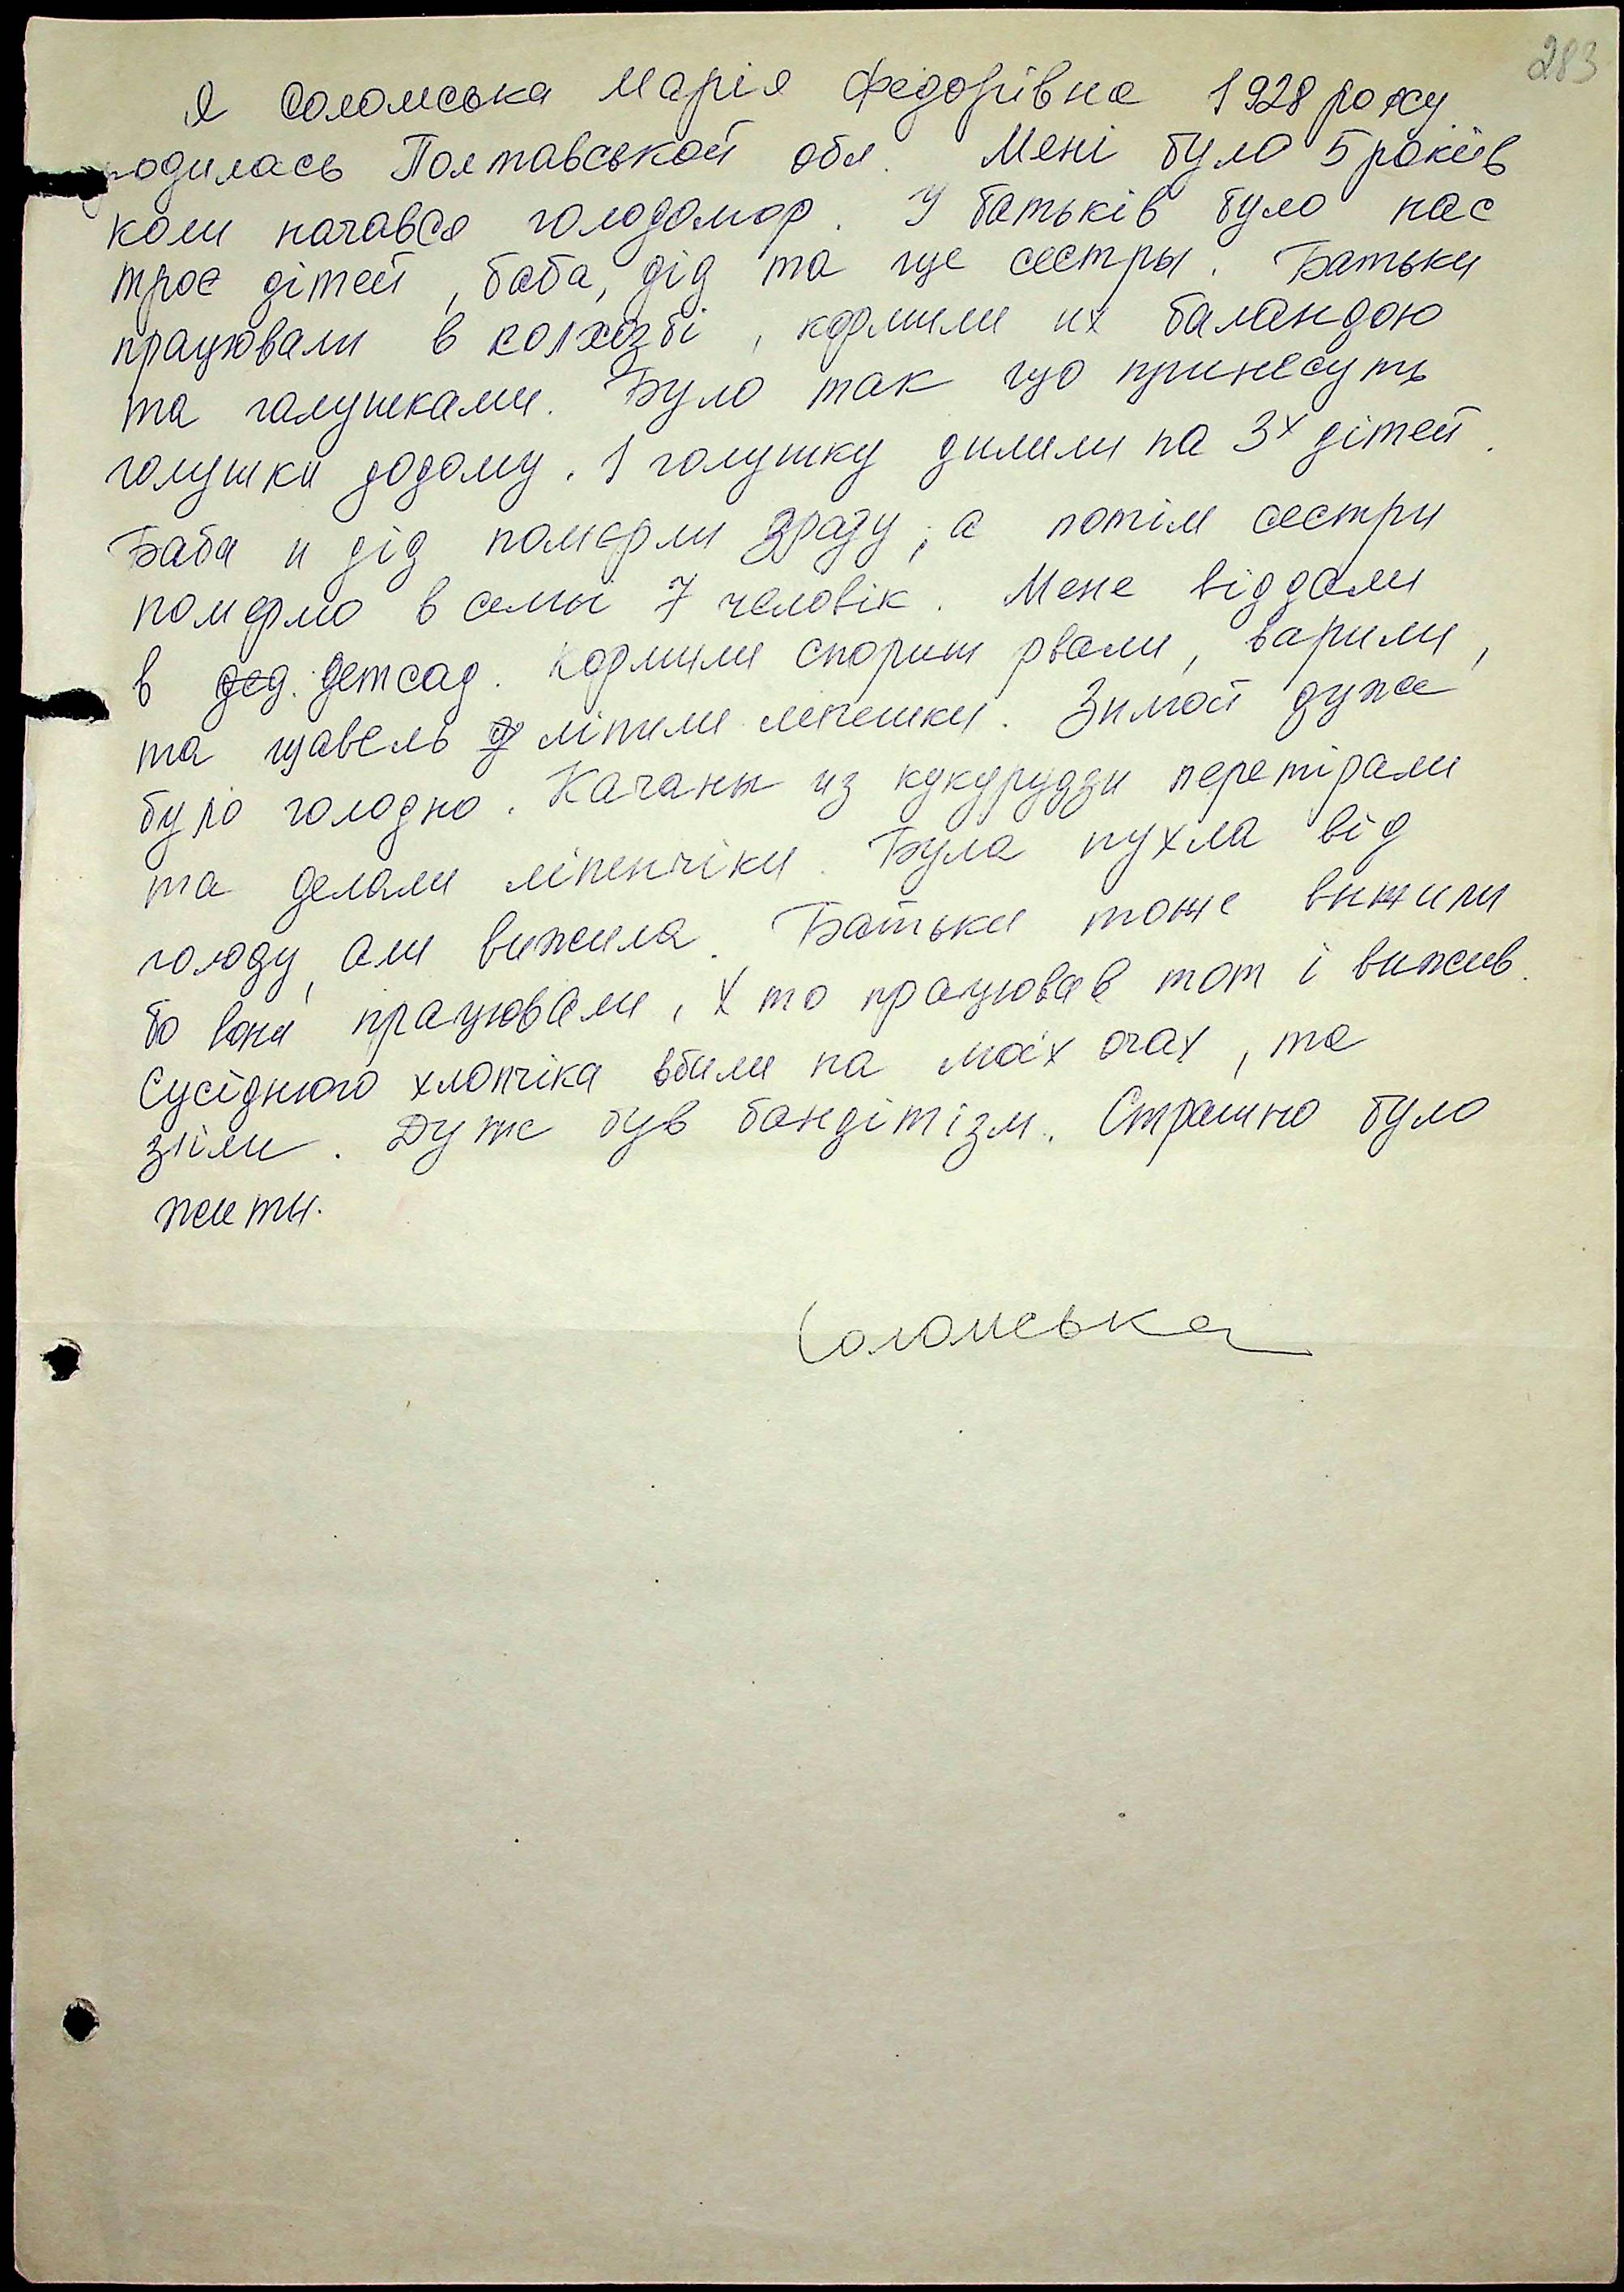 283
Я Соломська Марія Федорівна 1928 року
родилась Полтавськой обл. Мені було 5 років
коли начався голодомор. У батьків було нас
троє дітей, баба, дід та ще сестры. Батьки
працювали в колхозбі, кормили их баландою
та галушками. Було так що принесуть
голушки додому. 1 голушку дилили на 3х дітей.
Баба и дід померли зразу, а потім сестри
померло в семьі 7 человік. Мене віддали
в дед. детсад. Кормили спориш рвали, варили,
та щавель ліпили лепешки. Зимой дуже
було голодно. Качаны из кукурудзи перетірали
та делали ліпенчіки. Була пухла від
голоду, али вижила. Батьки тоже вижили
бо вони працювали, Хто працював тот і вижив.
Сусіднього хлопчіка вбили на моїх очах, та
зыіли. Дуже був бандітізм. Страшно було
жити.
Соломська